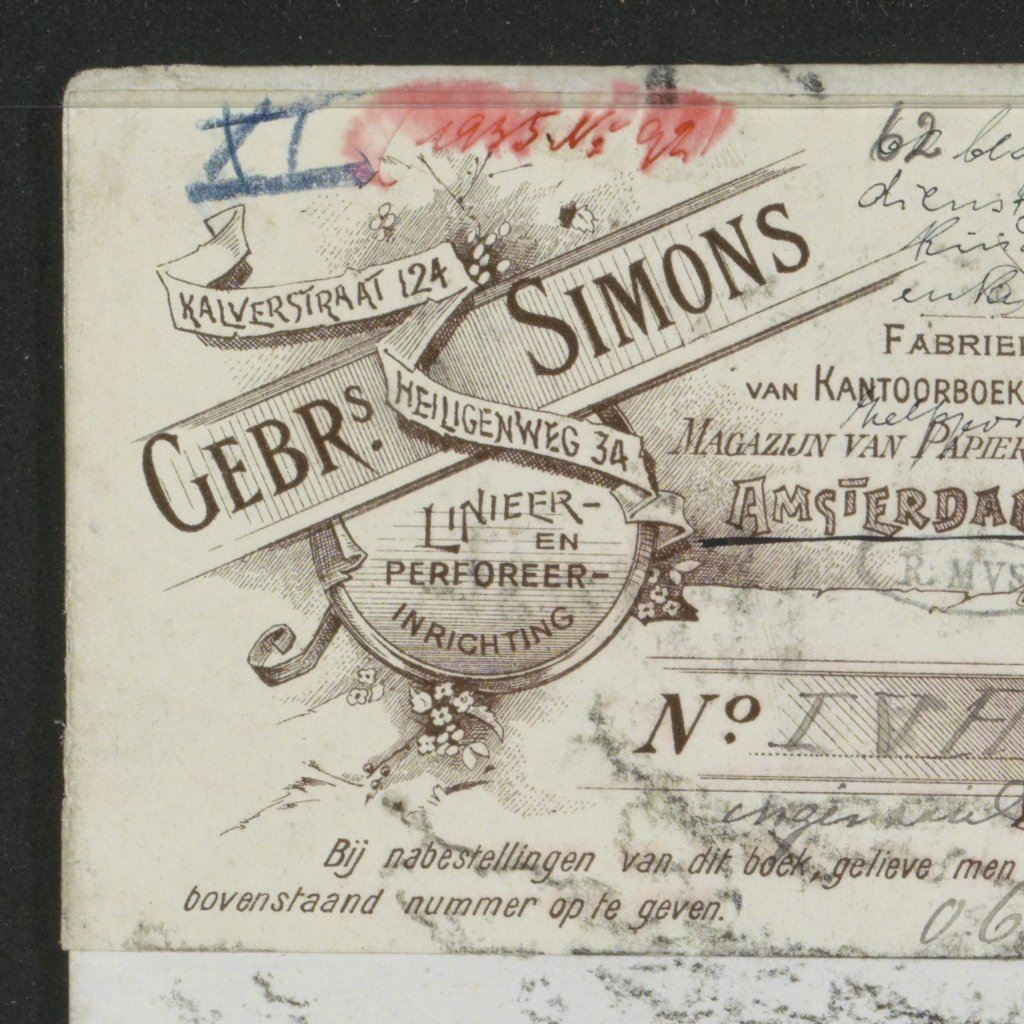 XI 1935 No 92
62 bla
dienst
KALVERSTRAAT 124
GEBRS. SIMONS
HEILIGENWEG 34
FABRIE
VAN KANTOORBOEK
MAGAZIJN VAN PAPIER
AMSTERDA
LINIEER-
EN
PERFOREER-
INRICHTING
R. MVS
No.
Bij nabestellingen van dit boek, gelieve men
bovenstaand nummer op te geven.
0.6